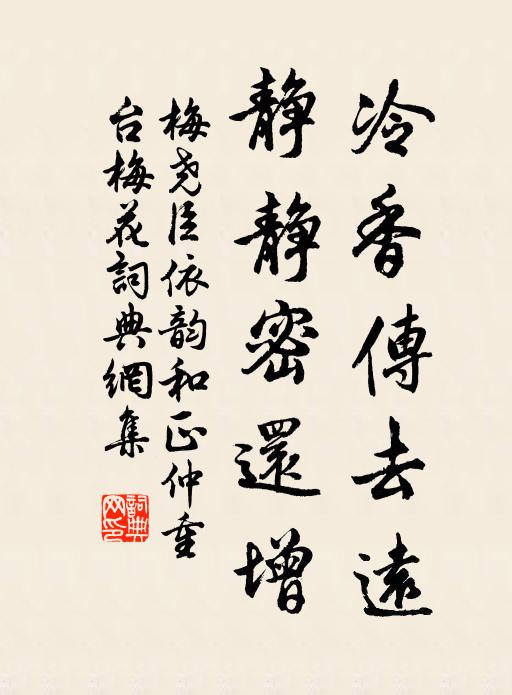 冷香傳去遠
静静密還增
梅尧臣依韵和正仲重
台梅花詞典網集
詞典网印